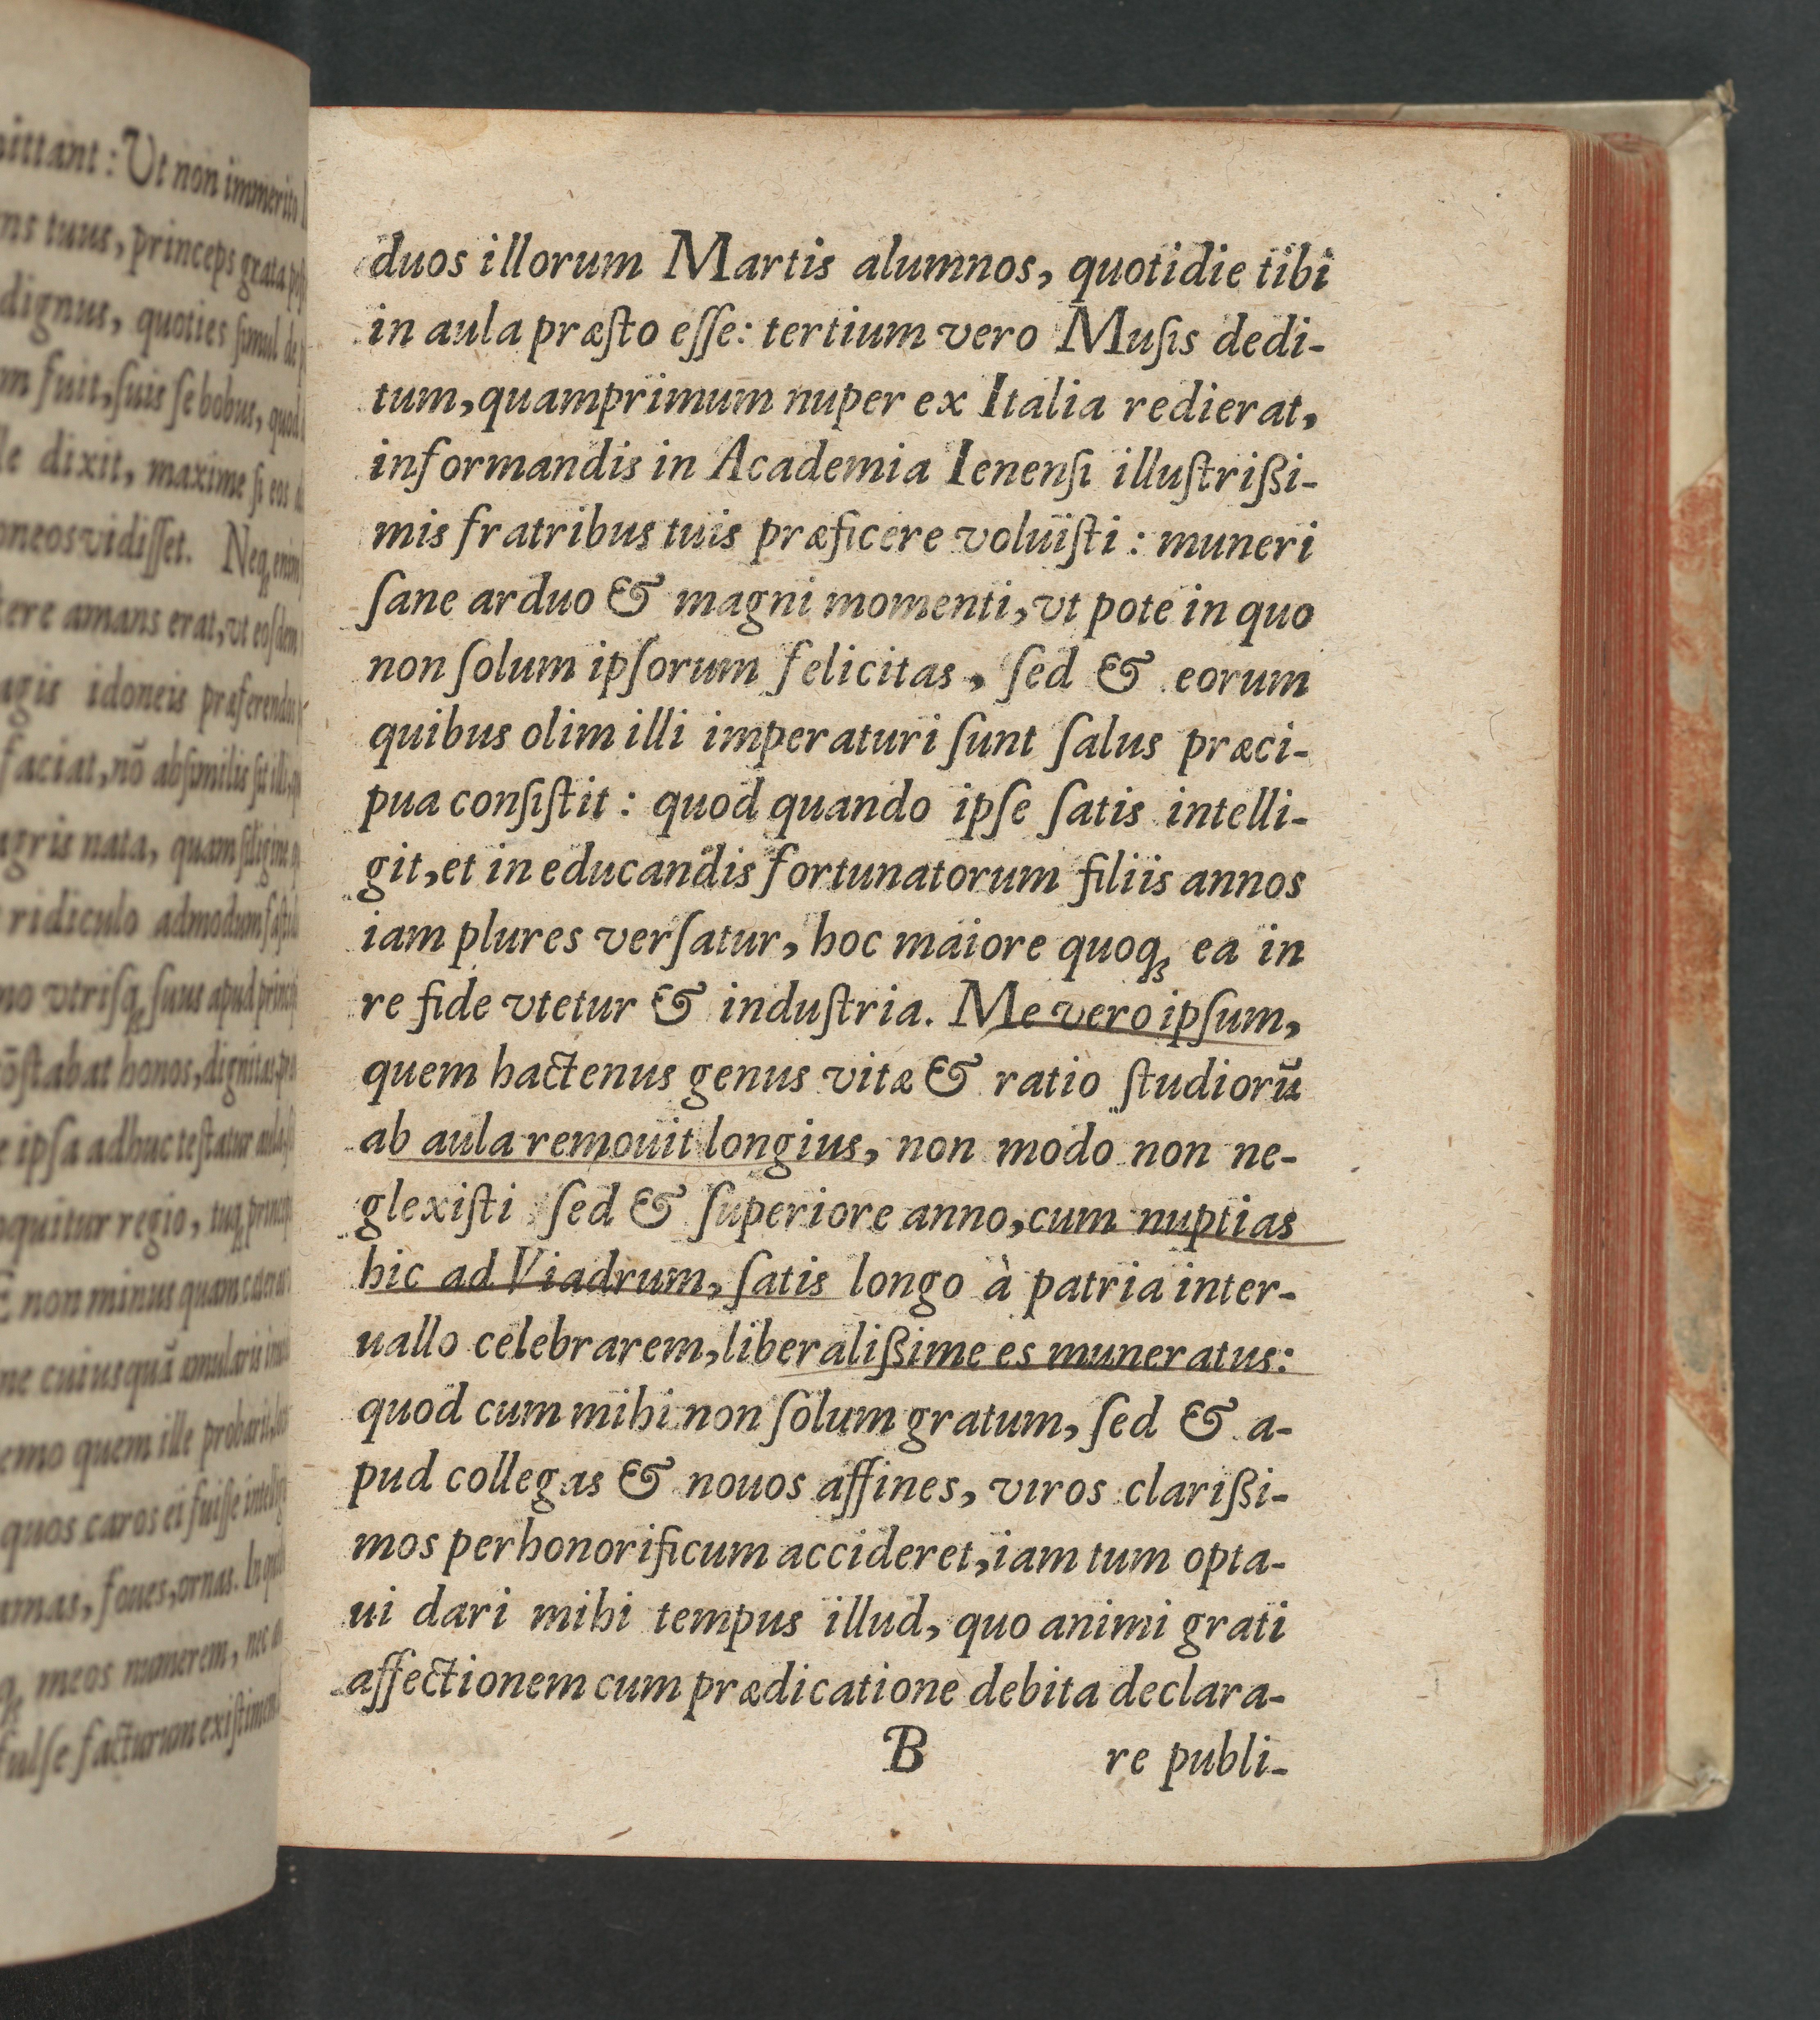 mittant: Ut non immerito
tuus, princeps grata
dignus, quoties simul de
fuit, suis se bobus, quod
dixit, maxime si eos
vidisset. Neq; enim
amans erat, vt eosdem
idoneis præferendos
faciat, nō absimilis sit illi,
agris nata, quam siligine
ridiculo admodum fastu
vtrisq; suus apud
honos, dignitas
ipsa adhuc testatur aula
regio, tuq; princeps
non minus quam
cuiusquā
quem ille probarit,
quos caros ei fuisse
foues, ornas. In
meos numerem, nec
facturum existimem
duos illorum Martis alumnos, quotidie tibi
in aula præſto eſſe: tertium vero Muſis dedi-
tum, quamprimum nuper ex Italia redierat,
informandis in Academia Ienenſi illuſtrißi-
mis fratribus tuis præficere voluiſti: muneri
ſane arduo & magni momenti, vt pote in quo
non ſolum ipſorum felicitas, ſed & eorum
quibus olim illi imperaturi ſunt ſalus præci-
pua conſiſtit: quod quando ipſe ſatis intelli-
git, et in educandis fortunatorum filiis annos
iam plures verſatur, hoc maiore quoq; ea in
re fide vtetur & induſtria. Me vero ipſum,
quem hactenus genus vitæ & ratio ſtudiorū
ab aula remouit longius, non modo non ne-
glexiſti ſed & ſuperiore anno, cum nuptias
hic ad Viadrum, ſatis longo à patria inter-
uallo celebrarem, liberalißime es muneratus:
quod cum mihi non ſolum gratum, ſed & a-
pud collegas & nouos affines, viros clarißi-
mos perhonorificum accideret, iam tum opta-
ui dari mihi tempus illud, quo animi grati
affectionem cum prædicatione debita declara-
B re publi-